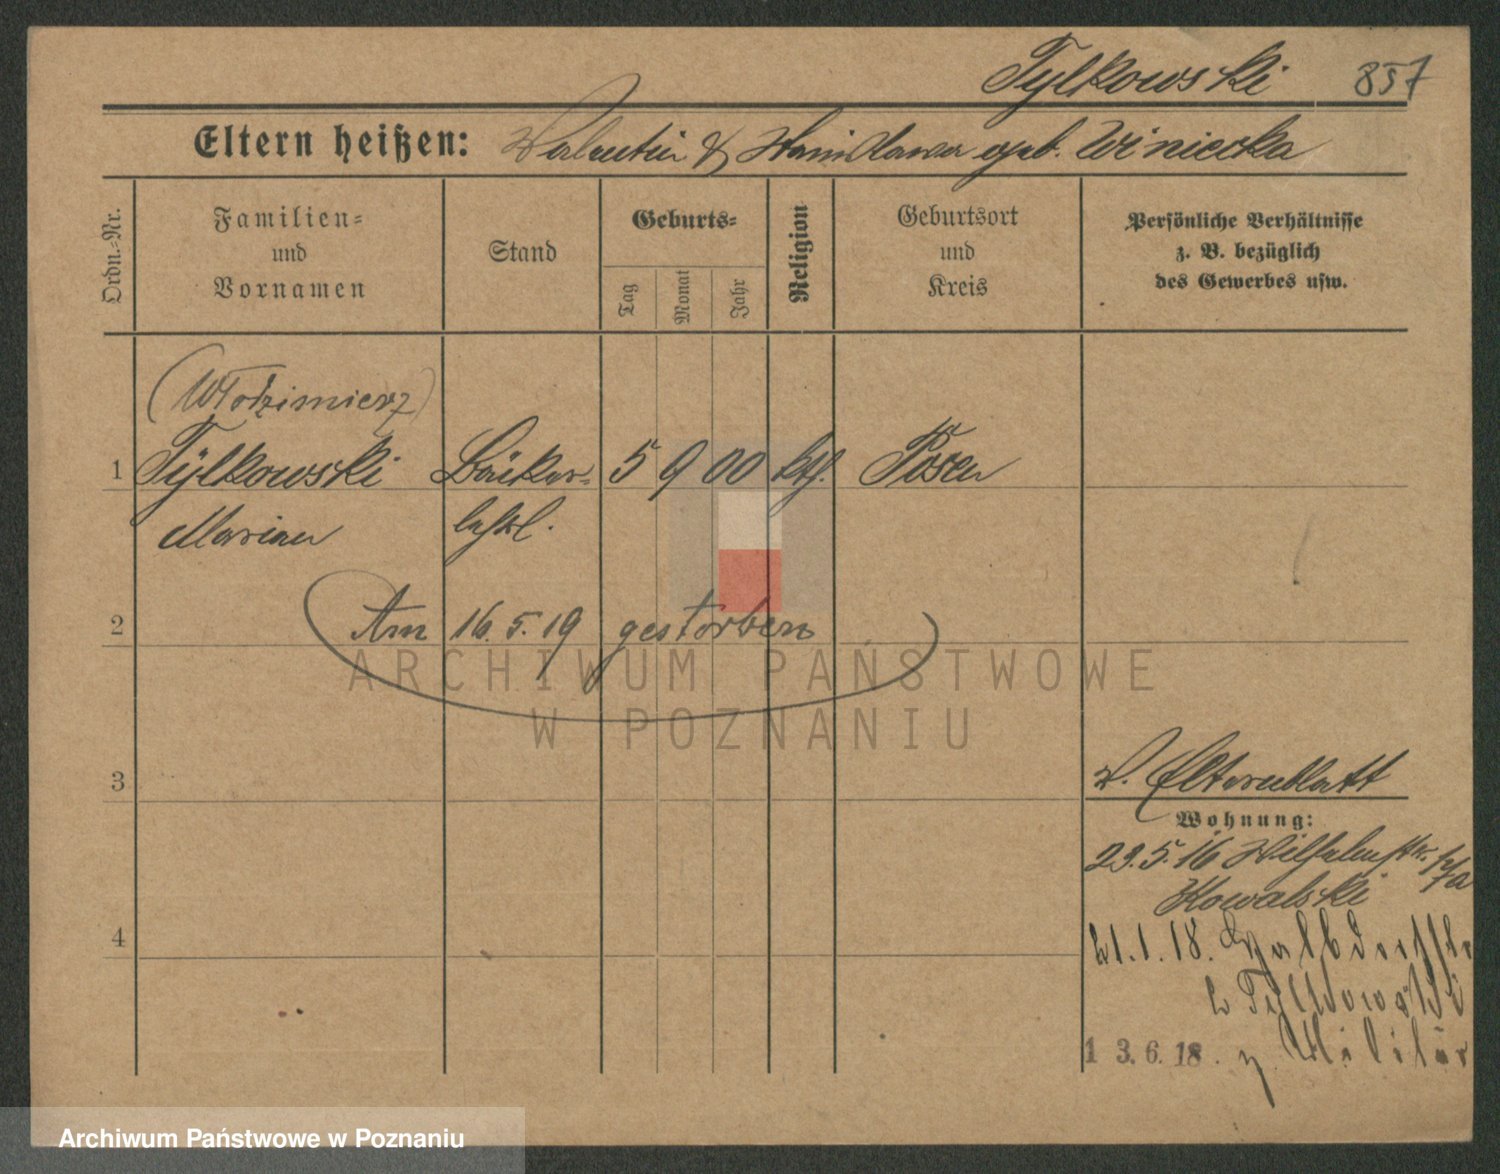 Tylkowski 857
Eltern heißen: Valentin & Stanislawa geb. Winiecka
Ordn.=Nr.
Familien=
und
Vornamen
Stand
Geburts=
Tag
Monat
Jahr
Religion
Geburtsort
und
Kreis
Persönliche Verhältnisse
z. B. bezüglich
des Gewerbes usw.
(Włodzimierz)
1 Tylkowski Bäcker= 5 9 00 kth. Posen
Marian lehrl.
2 Am 16.5.19 gestorben
ARCHIWUM PAŃSTWOWE
W POZNANIU
3
4
v. Elternblatt
Wohnung:
23.5.16 Wilhelmstr.
Kowalski
21.1.18. Halbdorfstr
b Tylkowski
13.6.18. z. Militär
Archiwum Państwowe w Poznaniu